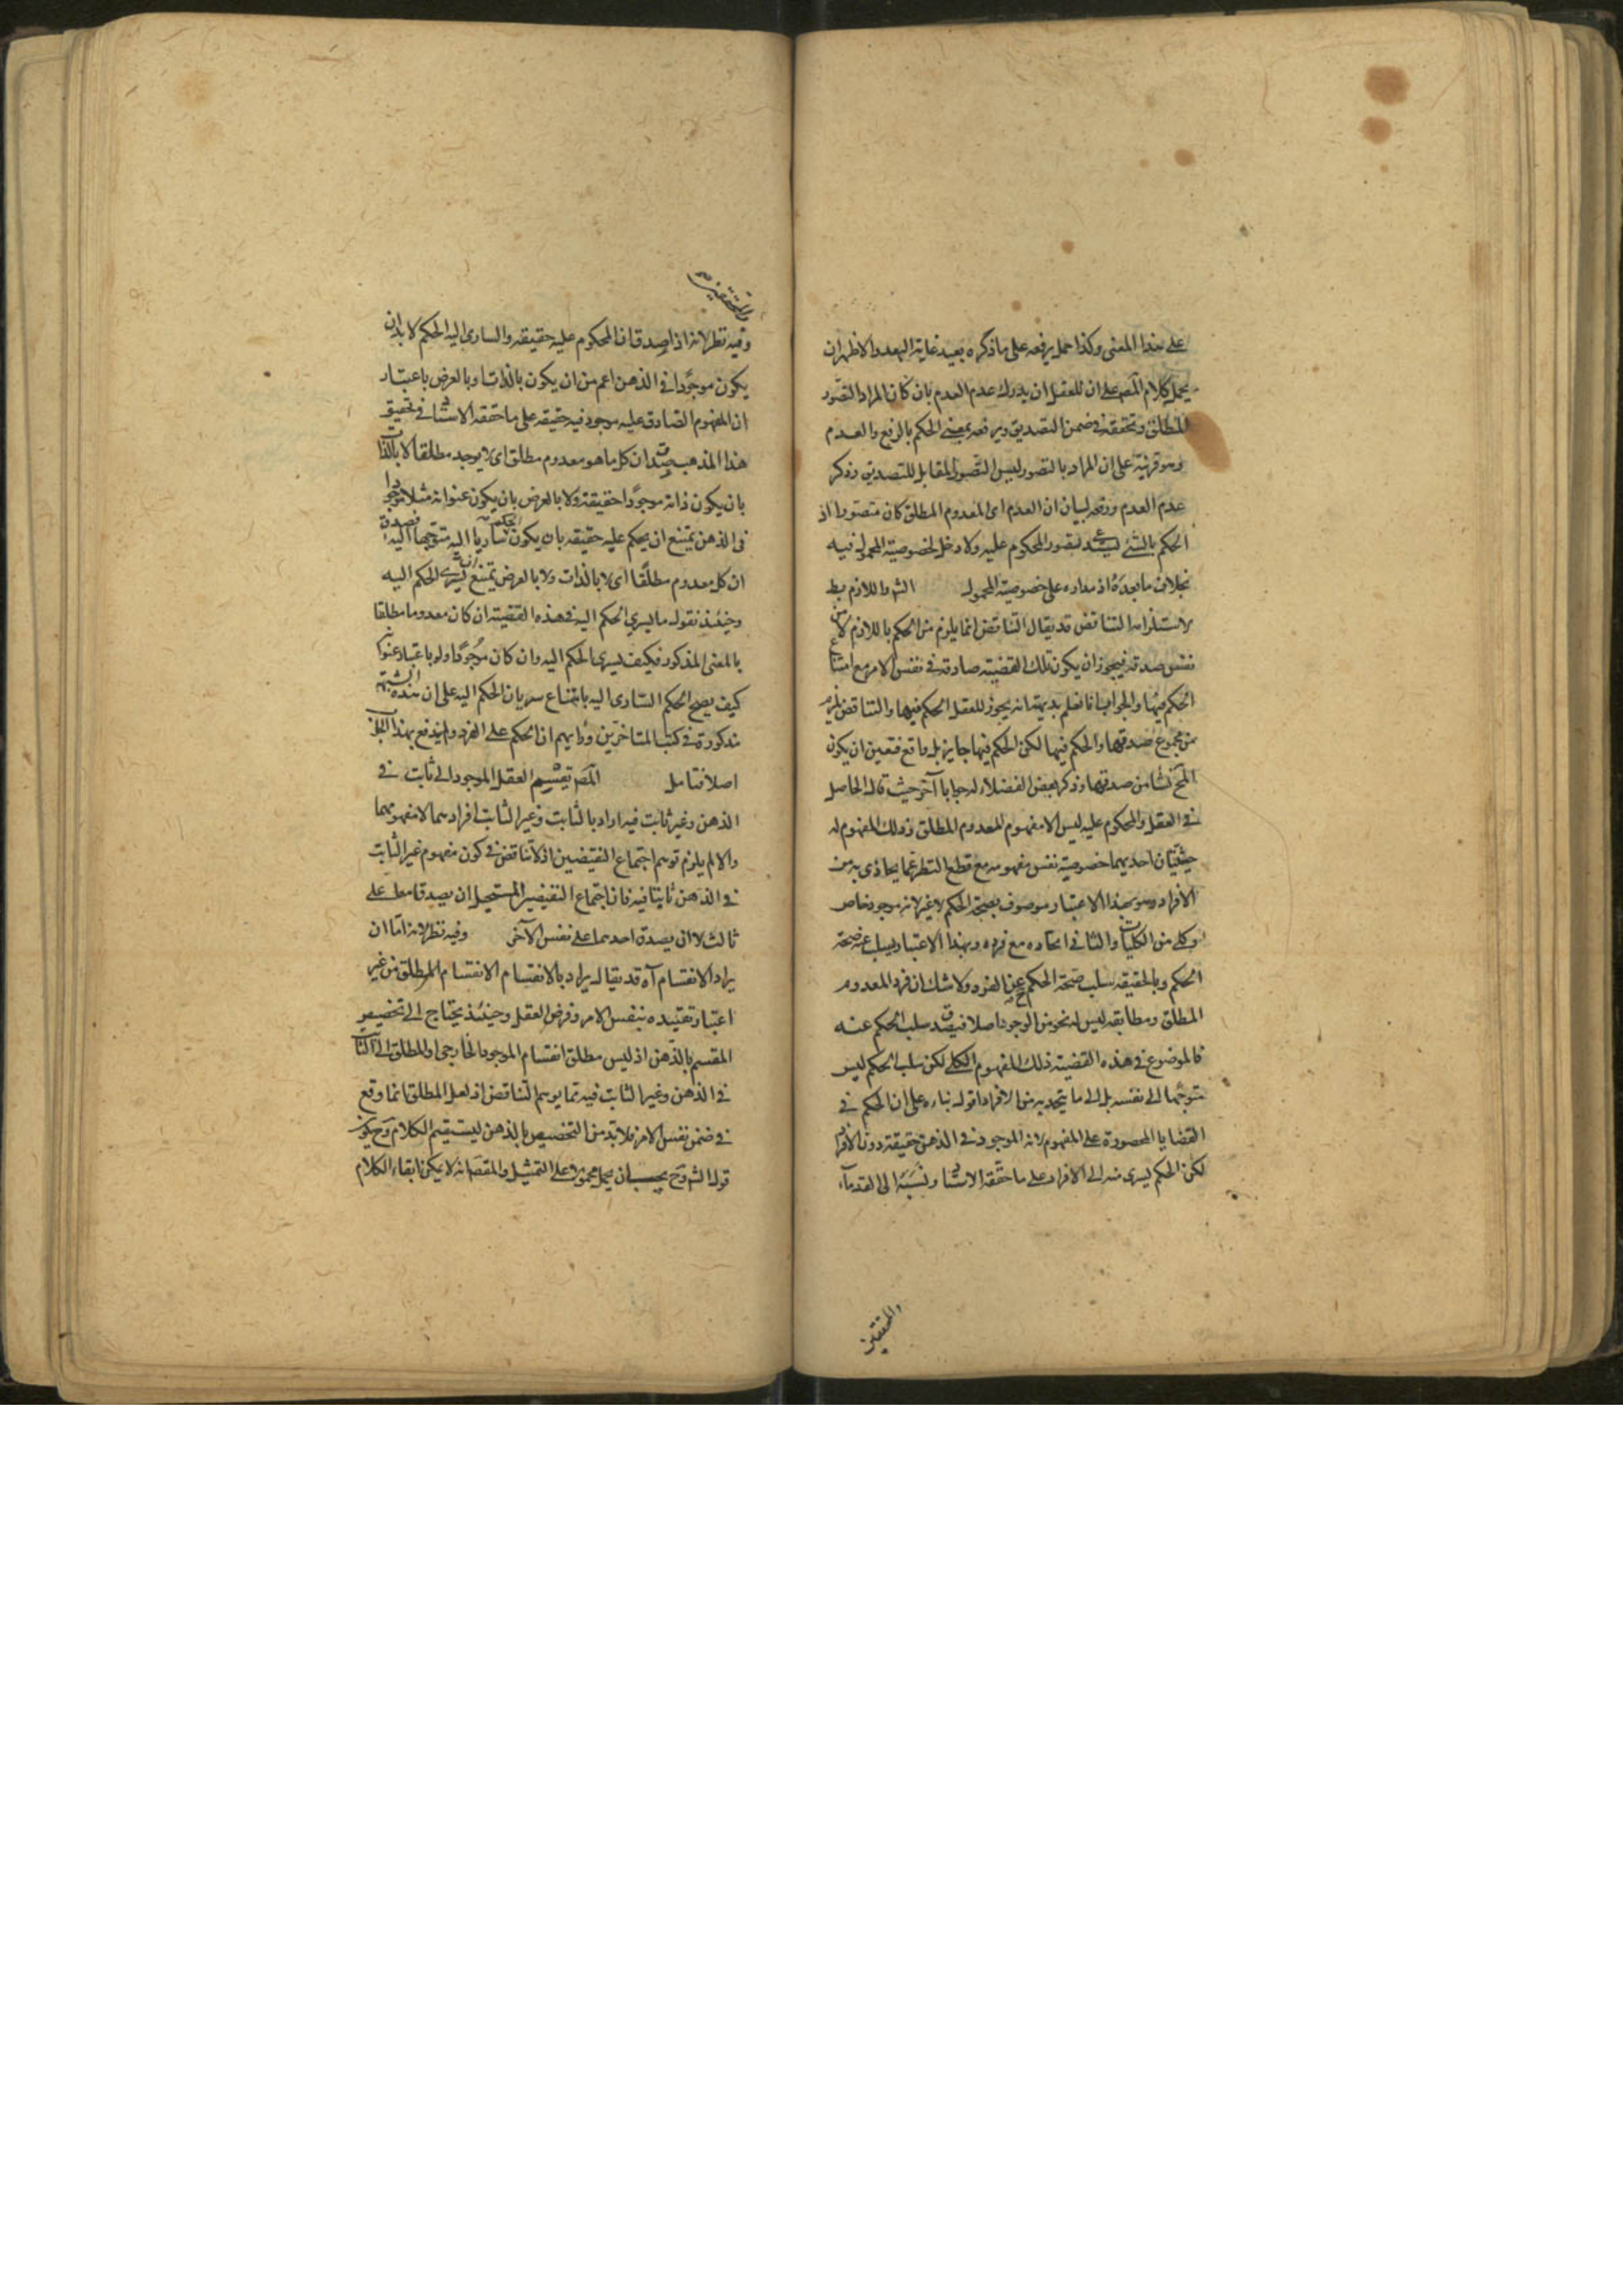 على هذا المعنى وكذا حمل يرفعه على ما ذكره بعيد غاية البعد والاظهر ان
يحمل كلام المصـ على ان للعقل ان يدرك عدم العدم بان كان المراد التصور
المطلق وتحققه في ضمن التصديق ويرفعه بمعنى الحكم بالرفع والعدم
وهو قرينة على ان المراد بالتصور ليس التصور المقابل للتصديق وذكر
عدم العدم ورفعه لبيان ان العدم اى المعدوم المطلق كان متصورا اذ
الحكم بالشئ يستدعى تصور المحكوم عليه ولا دخل لخصوصية المحمول فيه
بخلاف ما بعده اذ مداره على خصوصية المحمول الشـ واللازم بط
لاستلزامه التناقض قد يقال التناقض انما يلزم من الحكم باللازم لا من
نفس صدقه فيجوز ان يكون تلك القضية صادقة في نفس الامر مع امتناع
الحكم فيها والجواب انا نعلم بديهة انه يجوز للعقل الحكم فيها والتناقض يلزم
من مجموع صدقها والحكم فيها لكن الحكم فيها جايز بل واقع فتعين ان يكون
المح نشأ من صدقها وذكر بعض الفضلاء له جوابا آخر حيث قال الحاصل
في العقل والمحكوم عليه ليس الا مفهوم المعدوم المطلق وذلك المفهوم له
حيثيتان احديهما خصوصية نفس مفهومه مع قطع النظر عما يحاذى به من
الافراد وهو بهذا الاعتبار موصوف بصحة الحكم لا غير لانه موجود خاص
وكلى من الكليات والثانى اتحاده مع فرده وبهذا الاعتبار يسلب عنه صحة
الحكم وبالحقيقة سلب صحة الحكم عن الفرد ولا شك ان فرد المعدوم
المطلق ومطابقه ليس له نحو من الوجود اصلا فيصدق سلب الحكم عنه
فالموضوع في هذه القضية ذلك المفهوم الكلى لكن سلب الحكم ليس
متوجها الى نفسه بل الى ما يتحد به من الافراد اقول بناءه على ان الحكم في
القضايا المحصورة على المفهوم لانه الموجود في الذهن حقيقة دون الافراد
لكن الحكم يسرى منه الى الافراد على ما حققه الاستاد ونسبه الى القدماء
والمحققين
والمحققين
وفيه نظر لانه اذا صدق ان المحكوم عليه حقيقة والسارى اليه الحكم لا بد ان
يكون موجودا في الذهن اعم من ان يكون بالذات او بالعرض باعتبار
ان المفهوم الصادق عليه موجود فيه حقيقة على ما حققه الاستاد في تحقيق
هذا المذهب صدق ان كل ما هو معدوم مطلق اى لا يوجد مطلقا لا بالذات
بان يكون ذاته موجودا حقيقة ولا بالعرض بان يكون عنوانه مثلا موجودا
في الذهن يمتنع ان يحكم عليه حقيقة بان يكون الحكم ساريا اليه متوجها اليه فصدق
ان كل معدوم مطلقا اى لا بالذات ولا بالعرض يمتنع ان يسرى الحكم اليه
وحينئذ نقول ما يسرى الحكم اليه في هذه القضية ان كان معدوما مطلقا
بالمعنى المذكور فكيف يسرى الحكم اليه وان كان موجودا ولو باعتبار عنوانه
كيف يصح الحكم السارى اليه بامتناع سريان الحكم اليه على ان هذه الشبهة
مذكورة في كتب المتاخرين ورأيهم ان الحكم على الفرد ولا يندفع بهذا الكلام
اصلا فتامل المصـ تقسيم العقل الموجود الى ثابت في
الذهن وغير ثابت فيه اراد بالثابت وغير الثابت افرادهما لا مفهومهما
والا لم يلزم توهم اجتماع النقيضين اذ لا تناقض في كون مفهوم غير الثابت
في الذهن ثابتا فيه فان اجتماع النقيضين المستحيل ان يصدقا معا على
ثالث لا ان يصدق احدهما على نفس الآخر وفيه نظر لانه اما ان
يراد الانقسام آه قد يقال يراد بالانقسام الانقسام المطلق من غير
اعتبار تقييده بنفس الامر وفرض العقل وحينئذ يحتاج الى تخصيص
المقسم بالذهن اذ ليس مطلق انقسام الموجود الخارجى او المطلق الى الثابت
في الذهن وغير الثابت فيه مما يوهم التناقض اذ لعل المطلق انما وقع
في ضمن نفس الامر فلا بد من التخصيص بالذهن ليستقيم الكلام وح يكون
قول الشـ وح يجب ان يحمل محمولا على التمثيل والمقصـ انه لا يمكن ابقاء الكلام